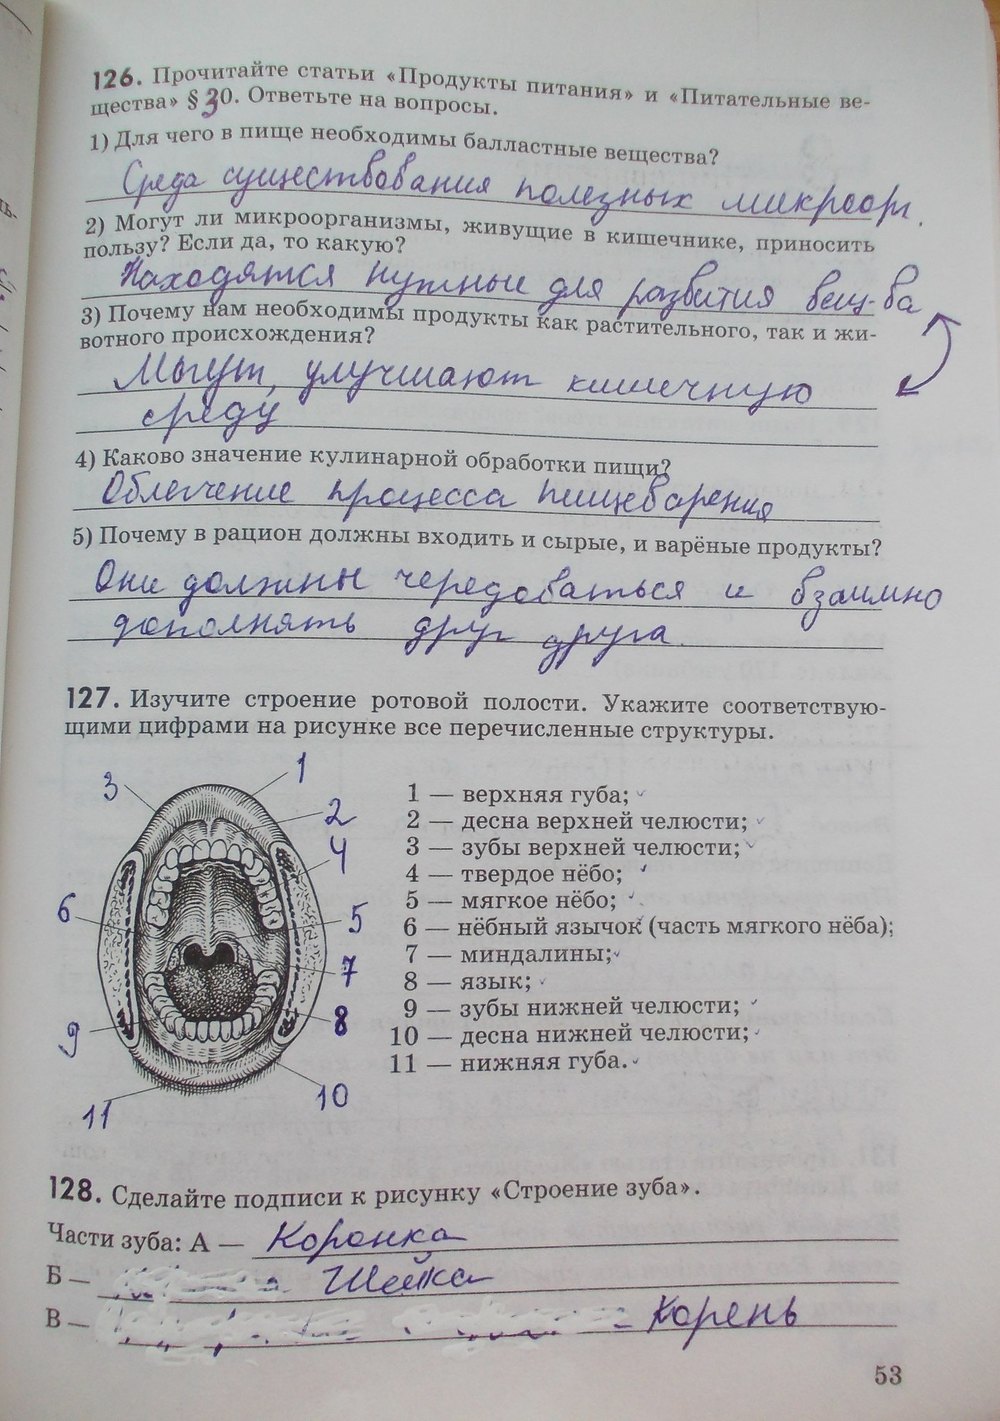 126. Прочитайте статьи «Продукты питания» и «Питательные ве-
щества» § 30. Ответьте на вопросы.
1) Для чего в пище необходимы балластные вещества?
Среда существования полезных микроорг.
2) Могут ли микроорганизмы, живущие в кишечнике, приносить
пользу? Если да, то какую?
Находятся нужные для развития вещ-ва
3) Почему нам необходимы продукты как растительного, так и жи-
вотного происхождения?
Могут, улучшают кишечную
среду
4) Каково значение кулинарной обработки пищи?
Облегчение процесса пищеварения
5) Почему в рацион должны входить и сырые, и варёные продукты?
Они должны чередоваться и взаимно
дополнять друг друга.
127. Изучите строение ротовой полости. Укажите соответствую-
щими цифрами на рисунке все перечисленные структуры.
3
1
2
4
6
5
7
8
9
10
11
1 — верхняя губа;
2 — десна верхней челюсти;
3 — зубы верхней челюсти;
4 — твердое нёбо;
5 — мягкое нёбо;
6 — нёбный язычок (часть мягкого нёба);
7 — миндалины;
8 — язык;
9 — зубы нижней челюсти;
10 — десна нижней челюсти;
11 — нижняя губа.
128. Сделайте подписи к рисунку «Строение зуба».
Части зуба: А — Коронка
Б — Шейка
В — Корень
53